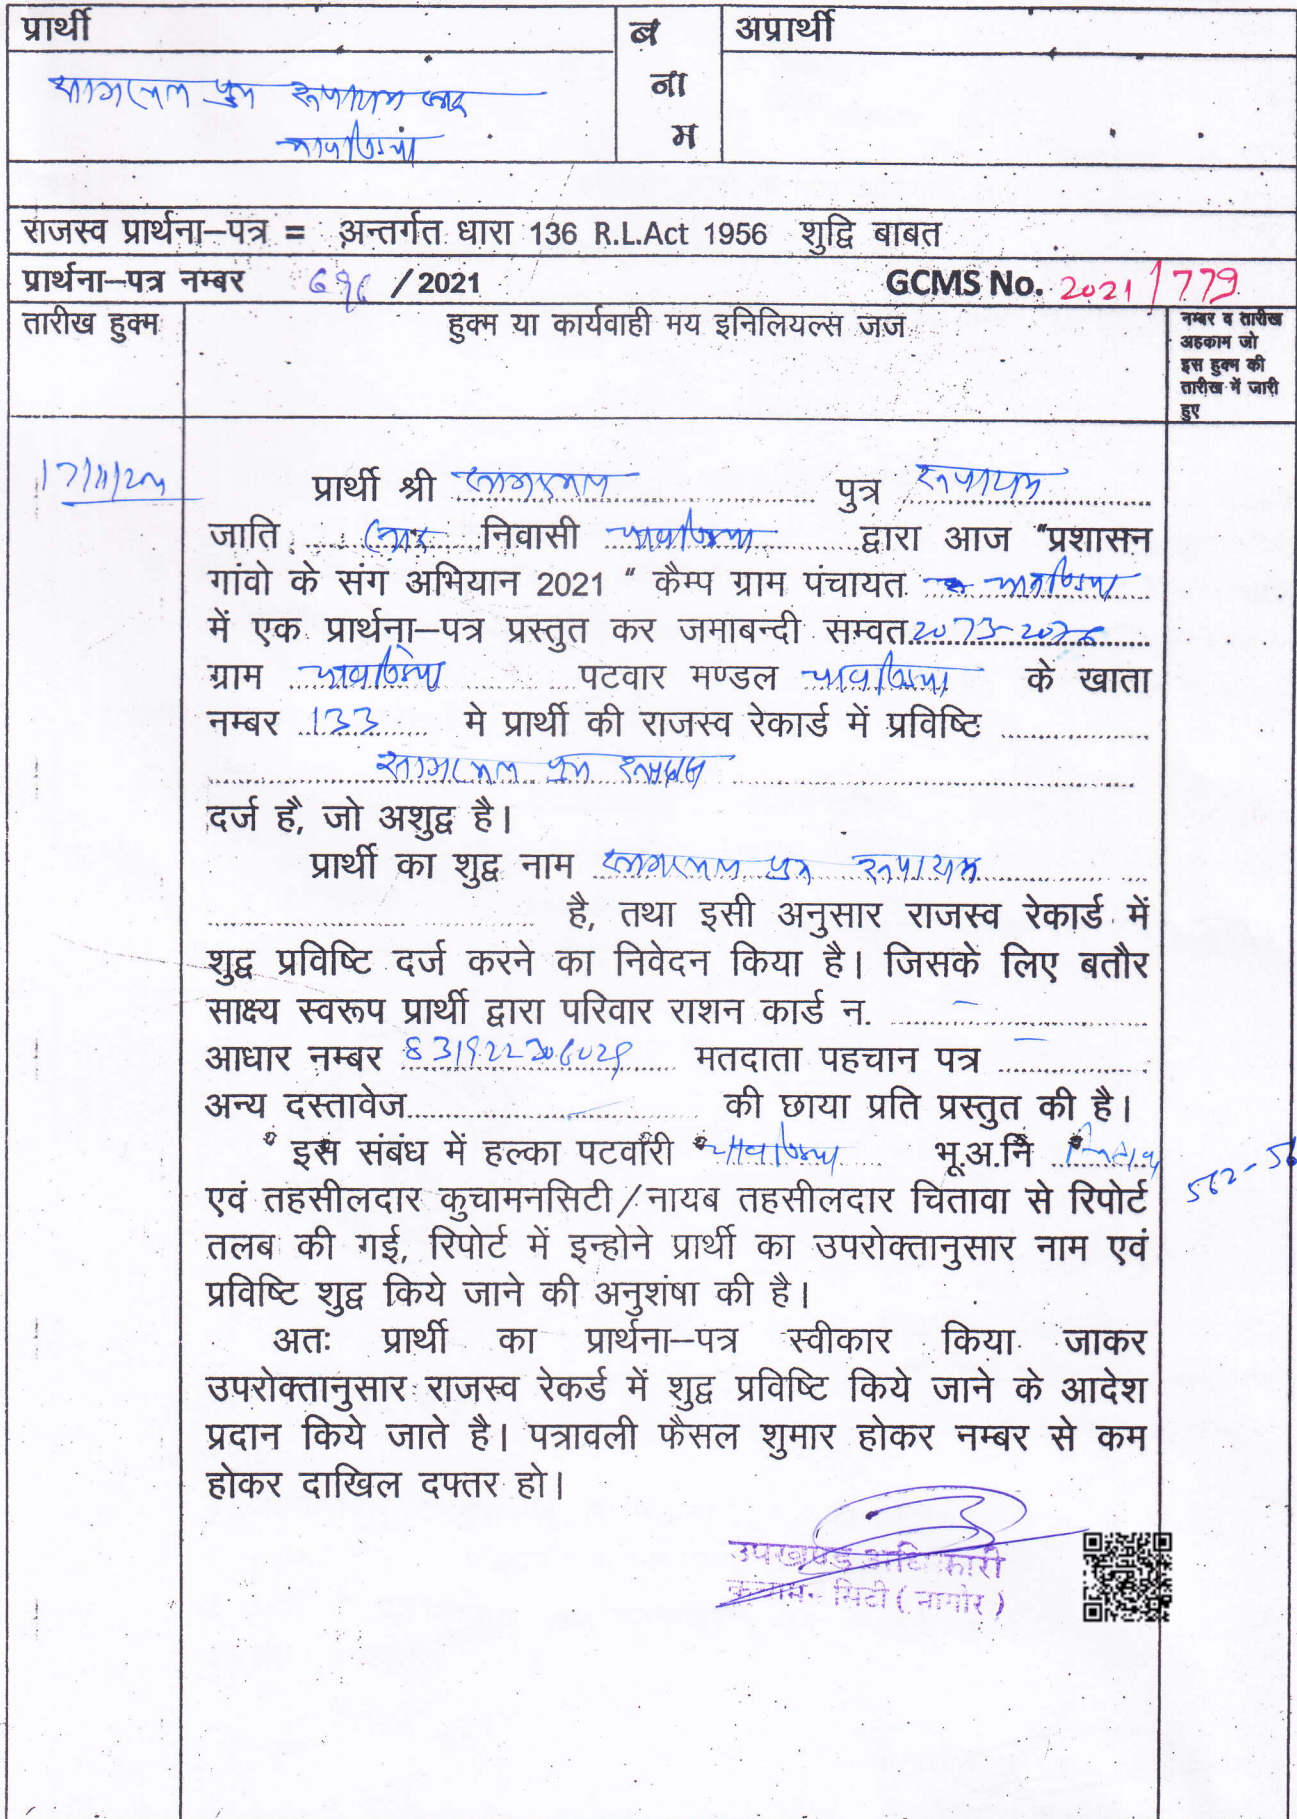 प्रार्थी
ब
ना
म
अप्रार्थी
पुत्र रूपाराम जाट
राजस्व प्रार्थना–पत्र = अन्तर्गत धारा 136 R.L.Act 1956 शुद्वि बाबत
प्रार्थना–पत्र नम्बर / 2021 GCMS No. 2021/779
तारीख हुक्म
हुक्म या कार्यवाही मय इनिलियल्स जज
नम्बर व तारीख
अहकाम जो
इस हुक्म की
तारीख में जारी
हुए
प्रार्थी श्री पुत्र रूपाराम
जाति जाट निवासी द्वारा आज "प्रशासन
गांवो के संग अभियान 2021 " कैम्प ग्राम पंचायत
में एक प्रार्थना–पत्र प्रस्तुत कर जमाबन्दी सम्वत 2073-2076
ग्राम पटवार मण्डल के खाता
नम्बर 133 मे प्रार्थी की राजस्व रेकार्ड में प्रविष्टि
पुत्र
दर्ज है, जो अशुद्व है।
प्रार्थी का शुद्व नाम पुत्र रूपाराम
है, तथा इसी अनुसार राजस्व रेकार्ड में
शुद्व प्रविष्टि दर्ज करने का निवेदन किया है। जिसके लिए बतौर
साक्ष्य स्वरूप प्रार्थी द्वारा परिवार राशन कार्ड न. –
आधार नम्बर मतदाता पहचान पत्र –
अन्य दस्तावेज की छाया प्रति प्रस्तुत की है।
इस संबंध में हल्का पटवारी भू.अ.नि
एवं तहसीलदार कुचामनसिटी/नायब तहसीलदार चितावा से रिपोर्ट
तलब की गई, रिपोर्ट में इन्होने प्रार्थी का उपरोक्तानुसार नाम एवं
प्रविष्टि शुद्व किये जाने की अनुशंषा की है।
अतः प्रार्थी का प्रार्थना–पत्र स्वीकार किया जाकर
उपरोक्तानुसार राजस्व रेकर्ड में शुद्व प्रविष्टि किये जाने के आदेश
प्रदान किये जाते है। पत्रावली फैसल शुमार होकर नम्बर से कम
होकर दाखिल दफ्तर हो।
उपखण्ड अधिकारी
कुचामन सिटी ( नागोर )